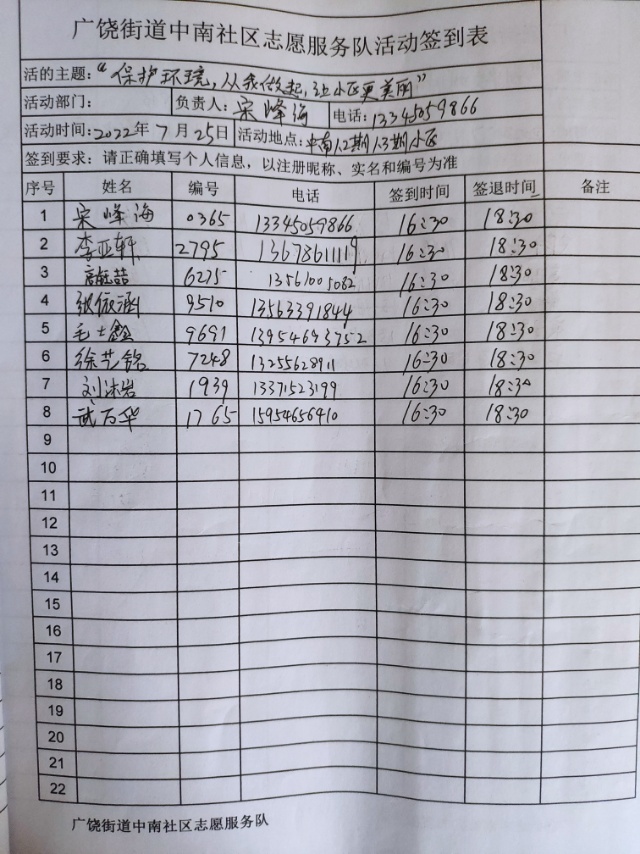 广饶街道中南社区志愿服务队活动签到表
活的主题：“保护环境，从我做起，让小区更美丽”
活动部门： 负责人：宋峰海 电话：13345059866
活动时间：2022年7月25日 活动地点：中南12期13期小区
签到要求：请正确填写个人信息，以注册昵称、实名和编号为准
序号 姓名 编号 电话 签到时间 签退时间 备注
1 宋峰海 0365 13345059866 16:30 18:30
2 李亚轩 2795 13678611119 16:30 18:30
3 6275 13561005082 16:30 18:30
4 张依涵 9510 13563391844 16:30 18:30
5 毛士鑫 9691 13954693752 16:30 18:30
6 徐艺铭 7248 13255628911 16:30 18:30
7 刘沐岩 1939 13371523199 16:30 18:30
8 武万华 1765 15954656410 16:30 18:30
9
10
11
12
13
14
15
16
17
18
19
20
21
22
广饶街道中南社区志愿服务队